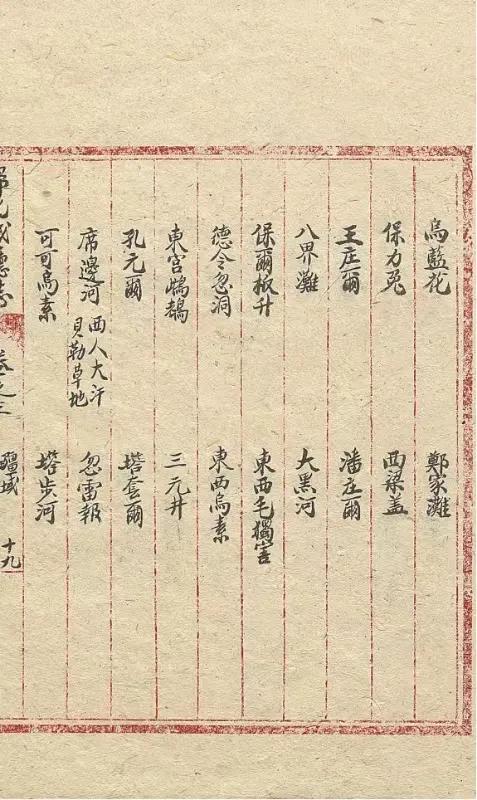 烏藍花 鄭家灘
保力兔 西梁盖
王庄爾 潘庄爾
八界灘 大黑河
保爾板升 東西毛獨害
德令忽洞 東西烏素
東宫 三元井
孔元爾 塔套爾
席邊河 西人大汗貝勒草地 忽雷報
可可烏素 塔步河
卷之三 疆域 十九